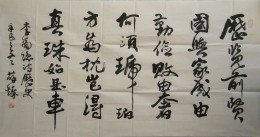 歷覽前賢
國與家成由
勤儉破由奢
何須琥珀
方為枕豈得
真珠始是車
李商隱詩詠史